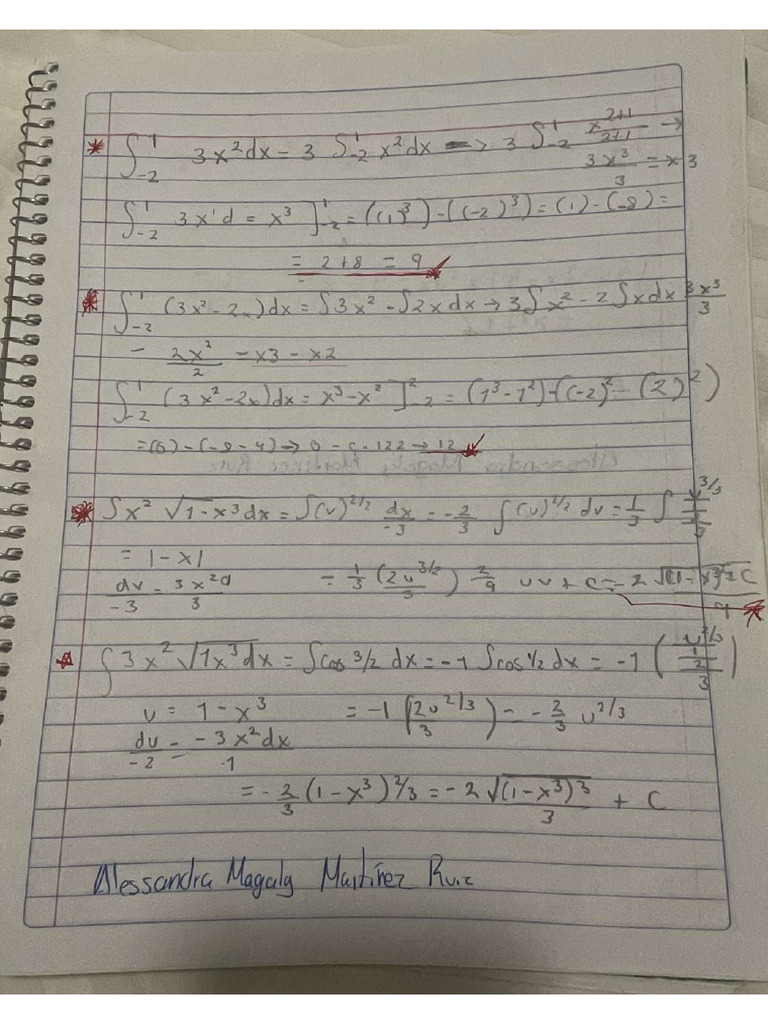 ∫₋₂¹ 3x²dx = 3 ∫₋₂¹ x²dx → 3 ∫₋₂¹ x²⁺¹/2+1 →
3x³/3 = x3
∫₋₂¹ 3x'd = x³ ]₋₂¹ = (1³) - ((-2)³) = (1) - (-8) =
= 2+8 = 9
∫₋₂¹ (3x² - 2x)dx = ∫3x² - ∫2x dx → 3∫x² - 2∫xdx 3x³/3
- 2x²/2 - x3 - x2
∫₋₂¹ (3x² - 2x)dx = x³ - x² ]₋₂² = (1³ - 1²) - (-2)² - (2)²)
= (0) - (-8 - 4) → 0 → 12
∫x² √1-x³dx = ∫(u)^2/2 dx/-3 = -2/3 ∫(u)^2/2 du = 1/3 ∫
= 1 - x1
du/-3 = 3x²d/3 = 1/3 (2u^3/2/3) 2/9 uu + C = 2√(1-x³)² C
∫3x² √1x³dx = ∫cos 3/2 dx = -1 ∫cos 1/2 dx = -1 (u^2/3/1/2/3)
u = 1 - x³ = -1 (2u^2/3/3) = -2/3 u^2/3
du/-2 = -3x²dx/.1
= -2/3 (1-x³)^2/3 = -2√(1-x³)³/3 + C
Alessandra Magaly Martínez Ruiz